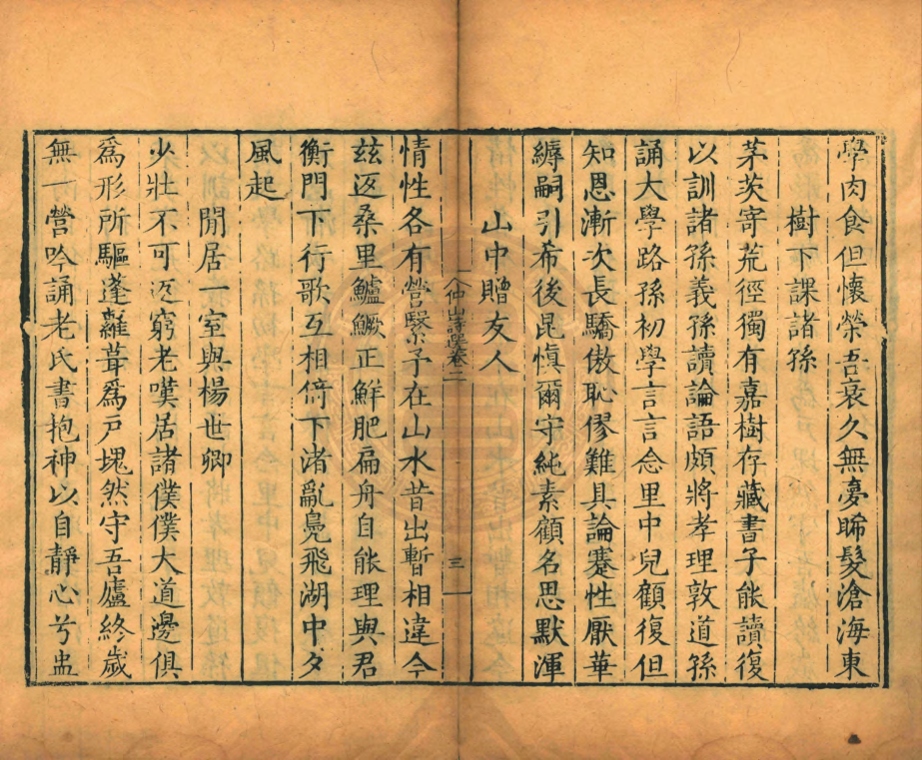 學肉食但懷榮吾衰久無憂晞髮滄海東
樹下課諸孫
茅茨寄荒徑獨有嘉樹存藏書子能讀復
以訓諸孫義孫讀論語頗將孝理敦道孫
誦大學路孫初學言言念里中兒顧復但
知恩漸次長驕傲恥僇難具論蹇性厭華
縟嗣引希後昆慎爾守純素顧名思默渾
山中贈友人
仲山詩選卷二
三
情性各有營繄子在山水昔出暫相違今
茲返桑里鱸鱖正鮮肥扁舟自能理與君
衡門下行歌互相倚下渚亂鳧飛湖中夕
風起
閒居一室與楊世卿
少壯不可返窮老嘆居諸僕僕大道邊俱
為形所驅蓬蘿葺為戸塊然守吾廬終歲
無一營吟誦老氏書抱神以自靜心兮盅